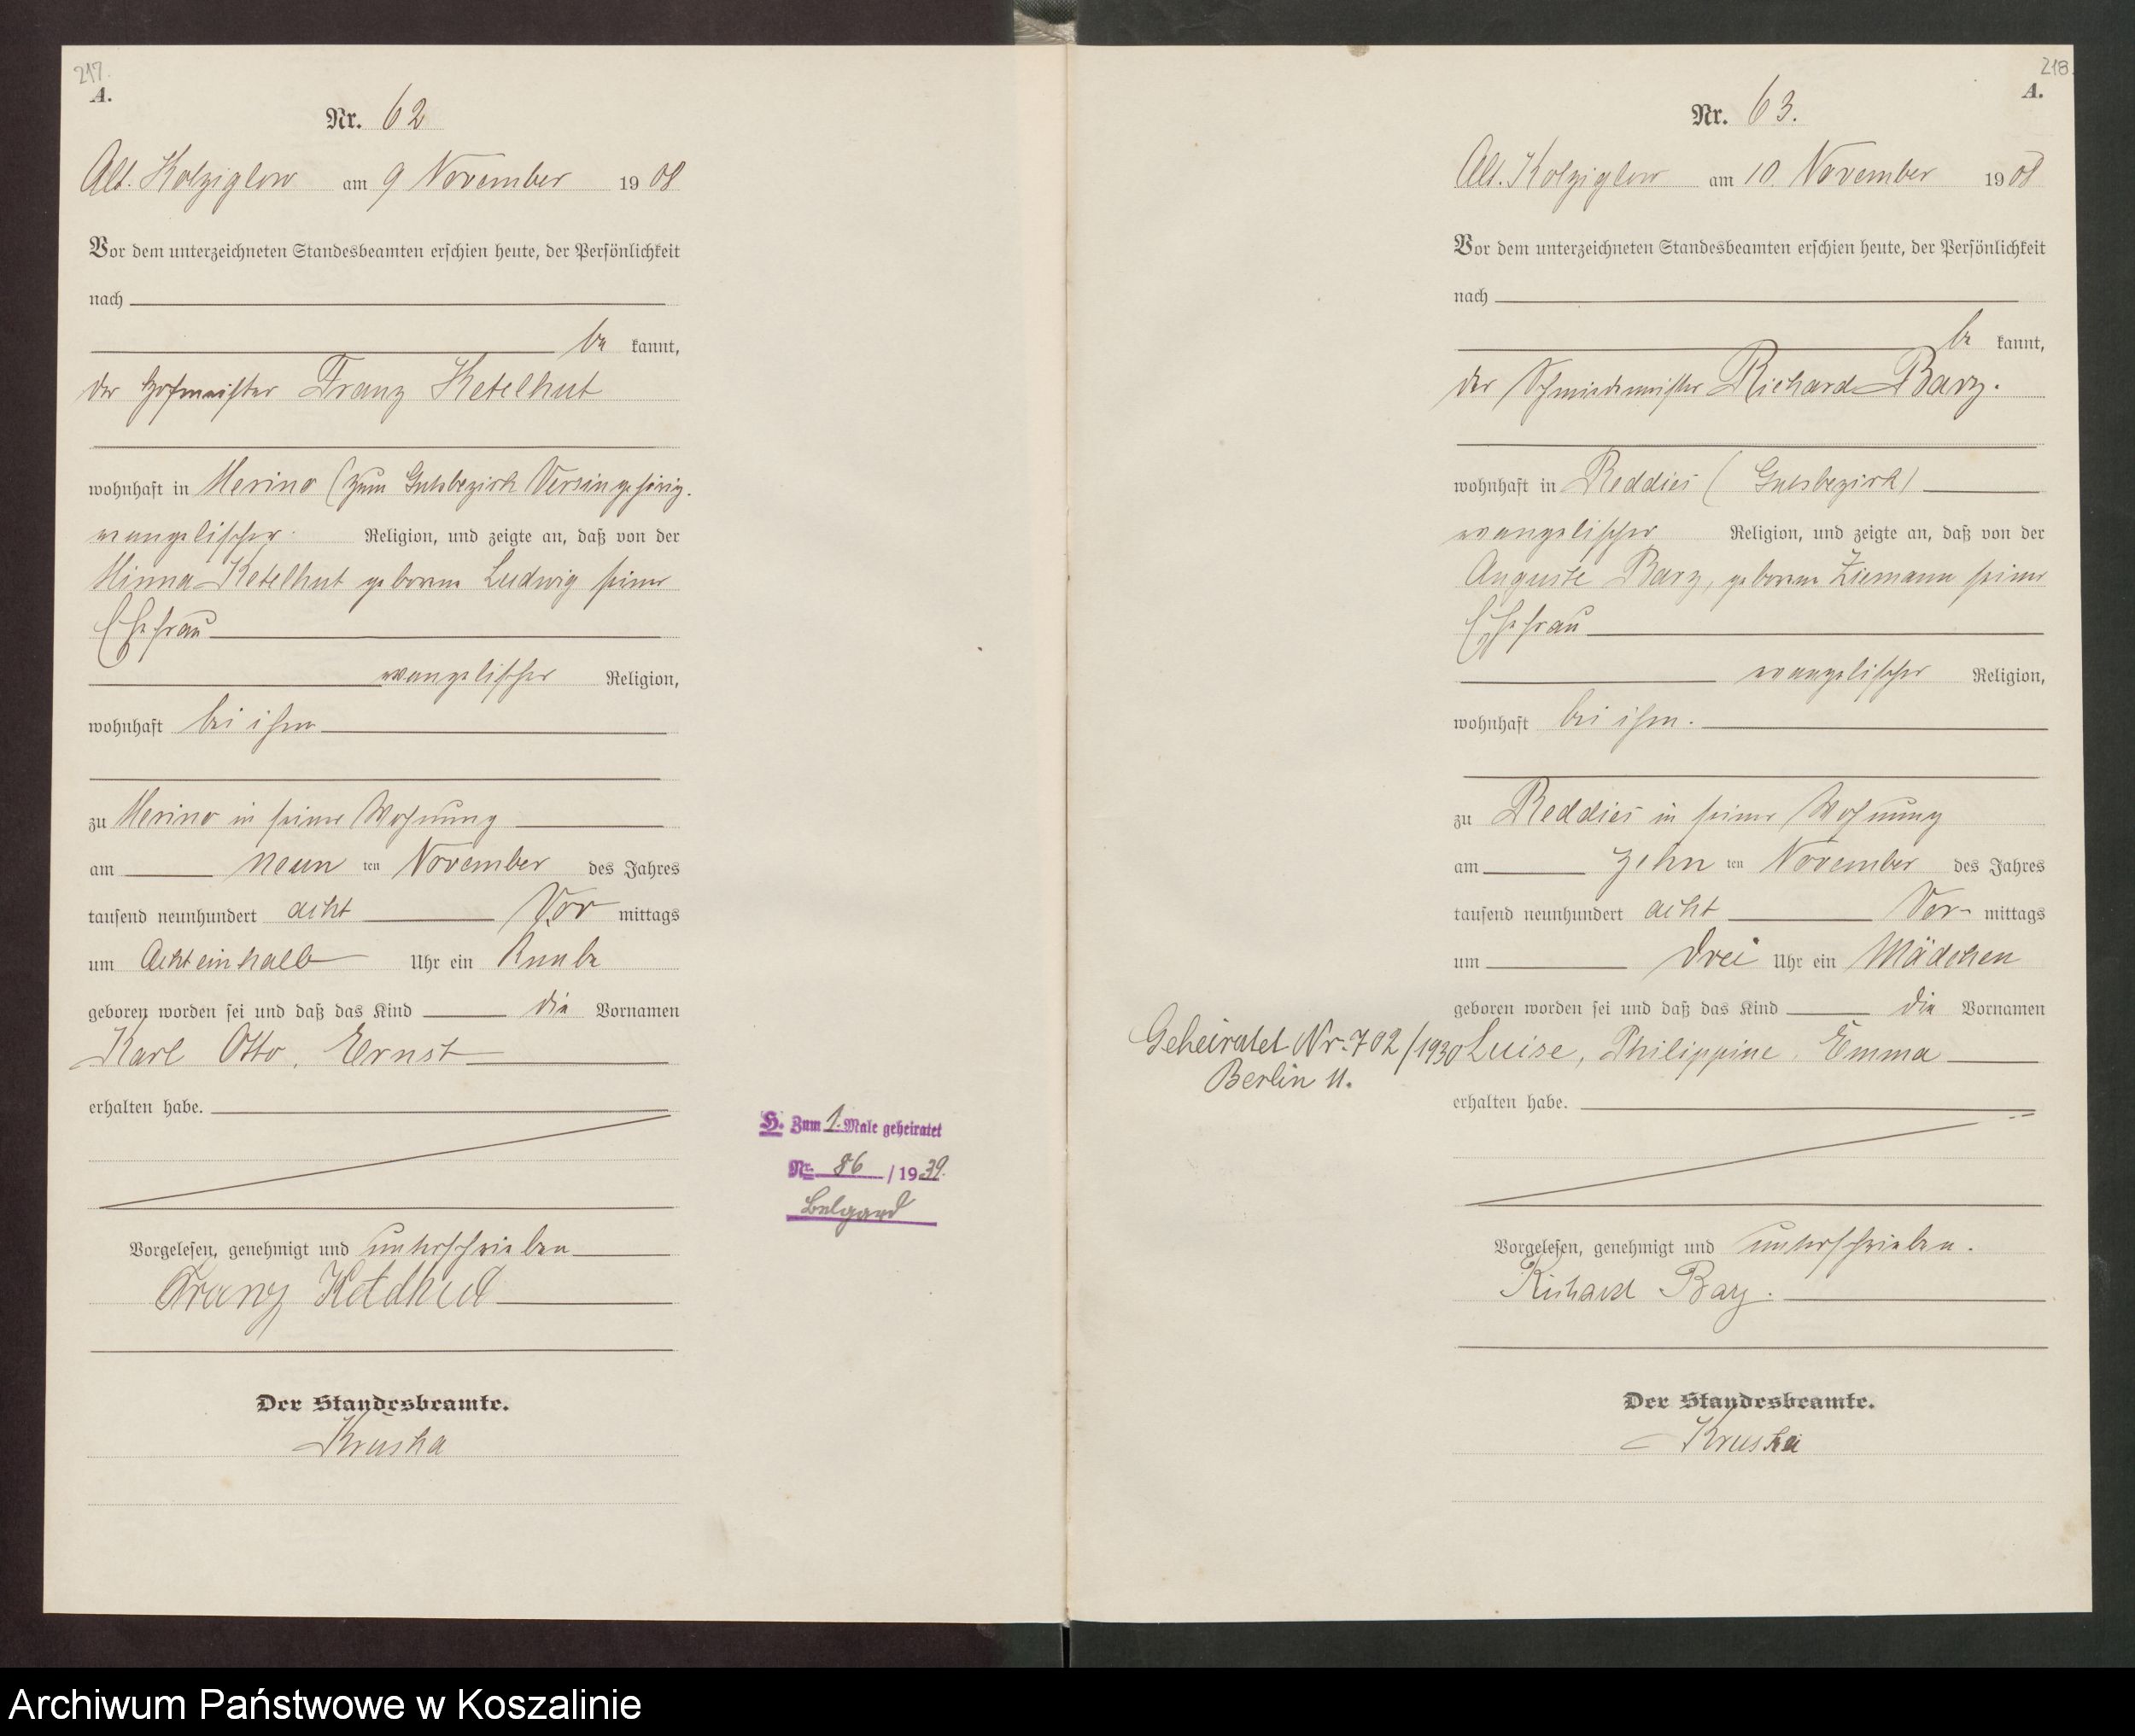 217.
A.
Nr. 62
Alt. Kolziglow am 9 November 1908
Vor dem unterzeichneten Standesbeamten erschien heute, der Persönlichkeit
nach
be kannt,
der Hofmeister Franz Ketelhut
wohnhaft in Merino (zum Gutsbezirk Versin gehörig.
evangelischer Religion, und zeigte an, daß von der
Minna Ketelhut geborene Ludwig seiner
Ehefrau
evangelischer Religion,
wohnhaft bei ihm
zu Merino in seiner Wohnung
am neun ten November des Jahres
tausend neunhundert acht Vor mittags
um Achteinhalb Uhr ein Knabe
geboren worden sei und daß das Kind die Vornamen
Karl Otto, Ernst
erhalten habe.
H. Zum 1. Male geheiratet
Nr. 86 / 1939.
Belgard
Vorgelesen, genehmigt und unterschrieben
Franz Ketelhut
Der Standesbeamte.
Kruska
218.
A.
Nr. 63.
Alt. Kolziglow am 10. November 1908
Vor dem unterzeichneten Standesbeamten erschien heute, der Persönlichkeit
nach
be kannt,
der Schmiedemeister Richard Barz.
wohnhaft in Reddies (Gutsbezirk)
evangelischer Religion, und zeigte an, daß von der
Auguste Barz, geborene Ziemann seiner
Ehefrau
evangelischer Religion,
wohnhaft bei ihm.
zu Reddies in seiner Wohnung
am zehn ten November des Jahres
tausend neunhundert acht Vor- mittags
um drei Uhr ein Mädchen
geboren worden sei und daß das Kind die Vornamen
Luise, Philippine, Emma
Geheiratet Nr. 702/1930
Berlin 11.
erhalten habe.
Vorgelesen, genehmigt und unterschrieben.
Richard Barz.
Der Standesbeamte.
Kruska
Archiwum Państwowe w Koszalinie